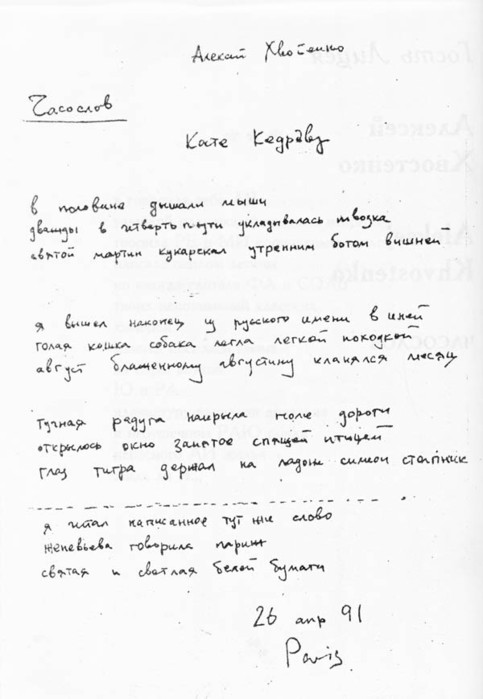 Алексей Хвостенко
Гость Лидея
Часослов
Алексей
Хвостенко
Кате Кедр
Khvostenko
в половине дышали мыши
дважды в четверть пути укладывалась
святой мартин кукарекал утренним богом вишней
я вышел наконец из русского имени в иней
голая кошка собака легла легкой походкой
август блаженному августину кланялся месяц
тучная радуга накрыла поле дороги
открылось окно занятое спящей птицей
глаз тигра держал на ладони симеон столпник
я читал написанное тут же слово
женевьева говорила париж
святая и светлая белой бумаги
26 апр 91
Paris